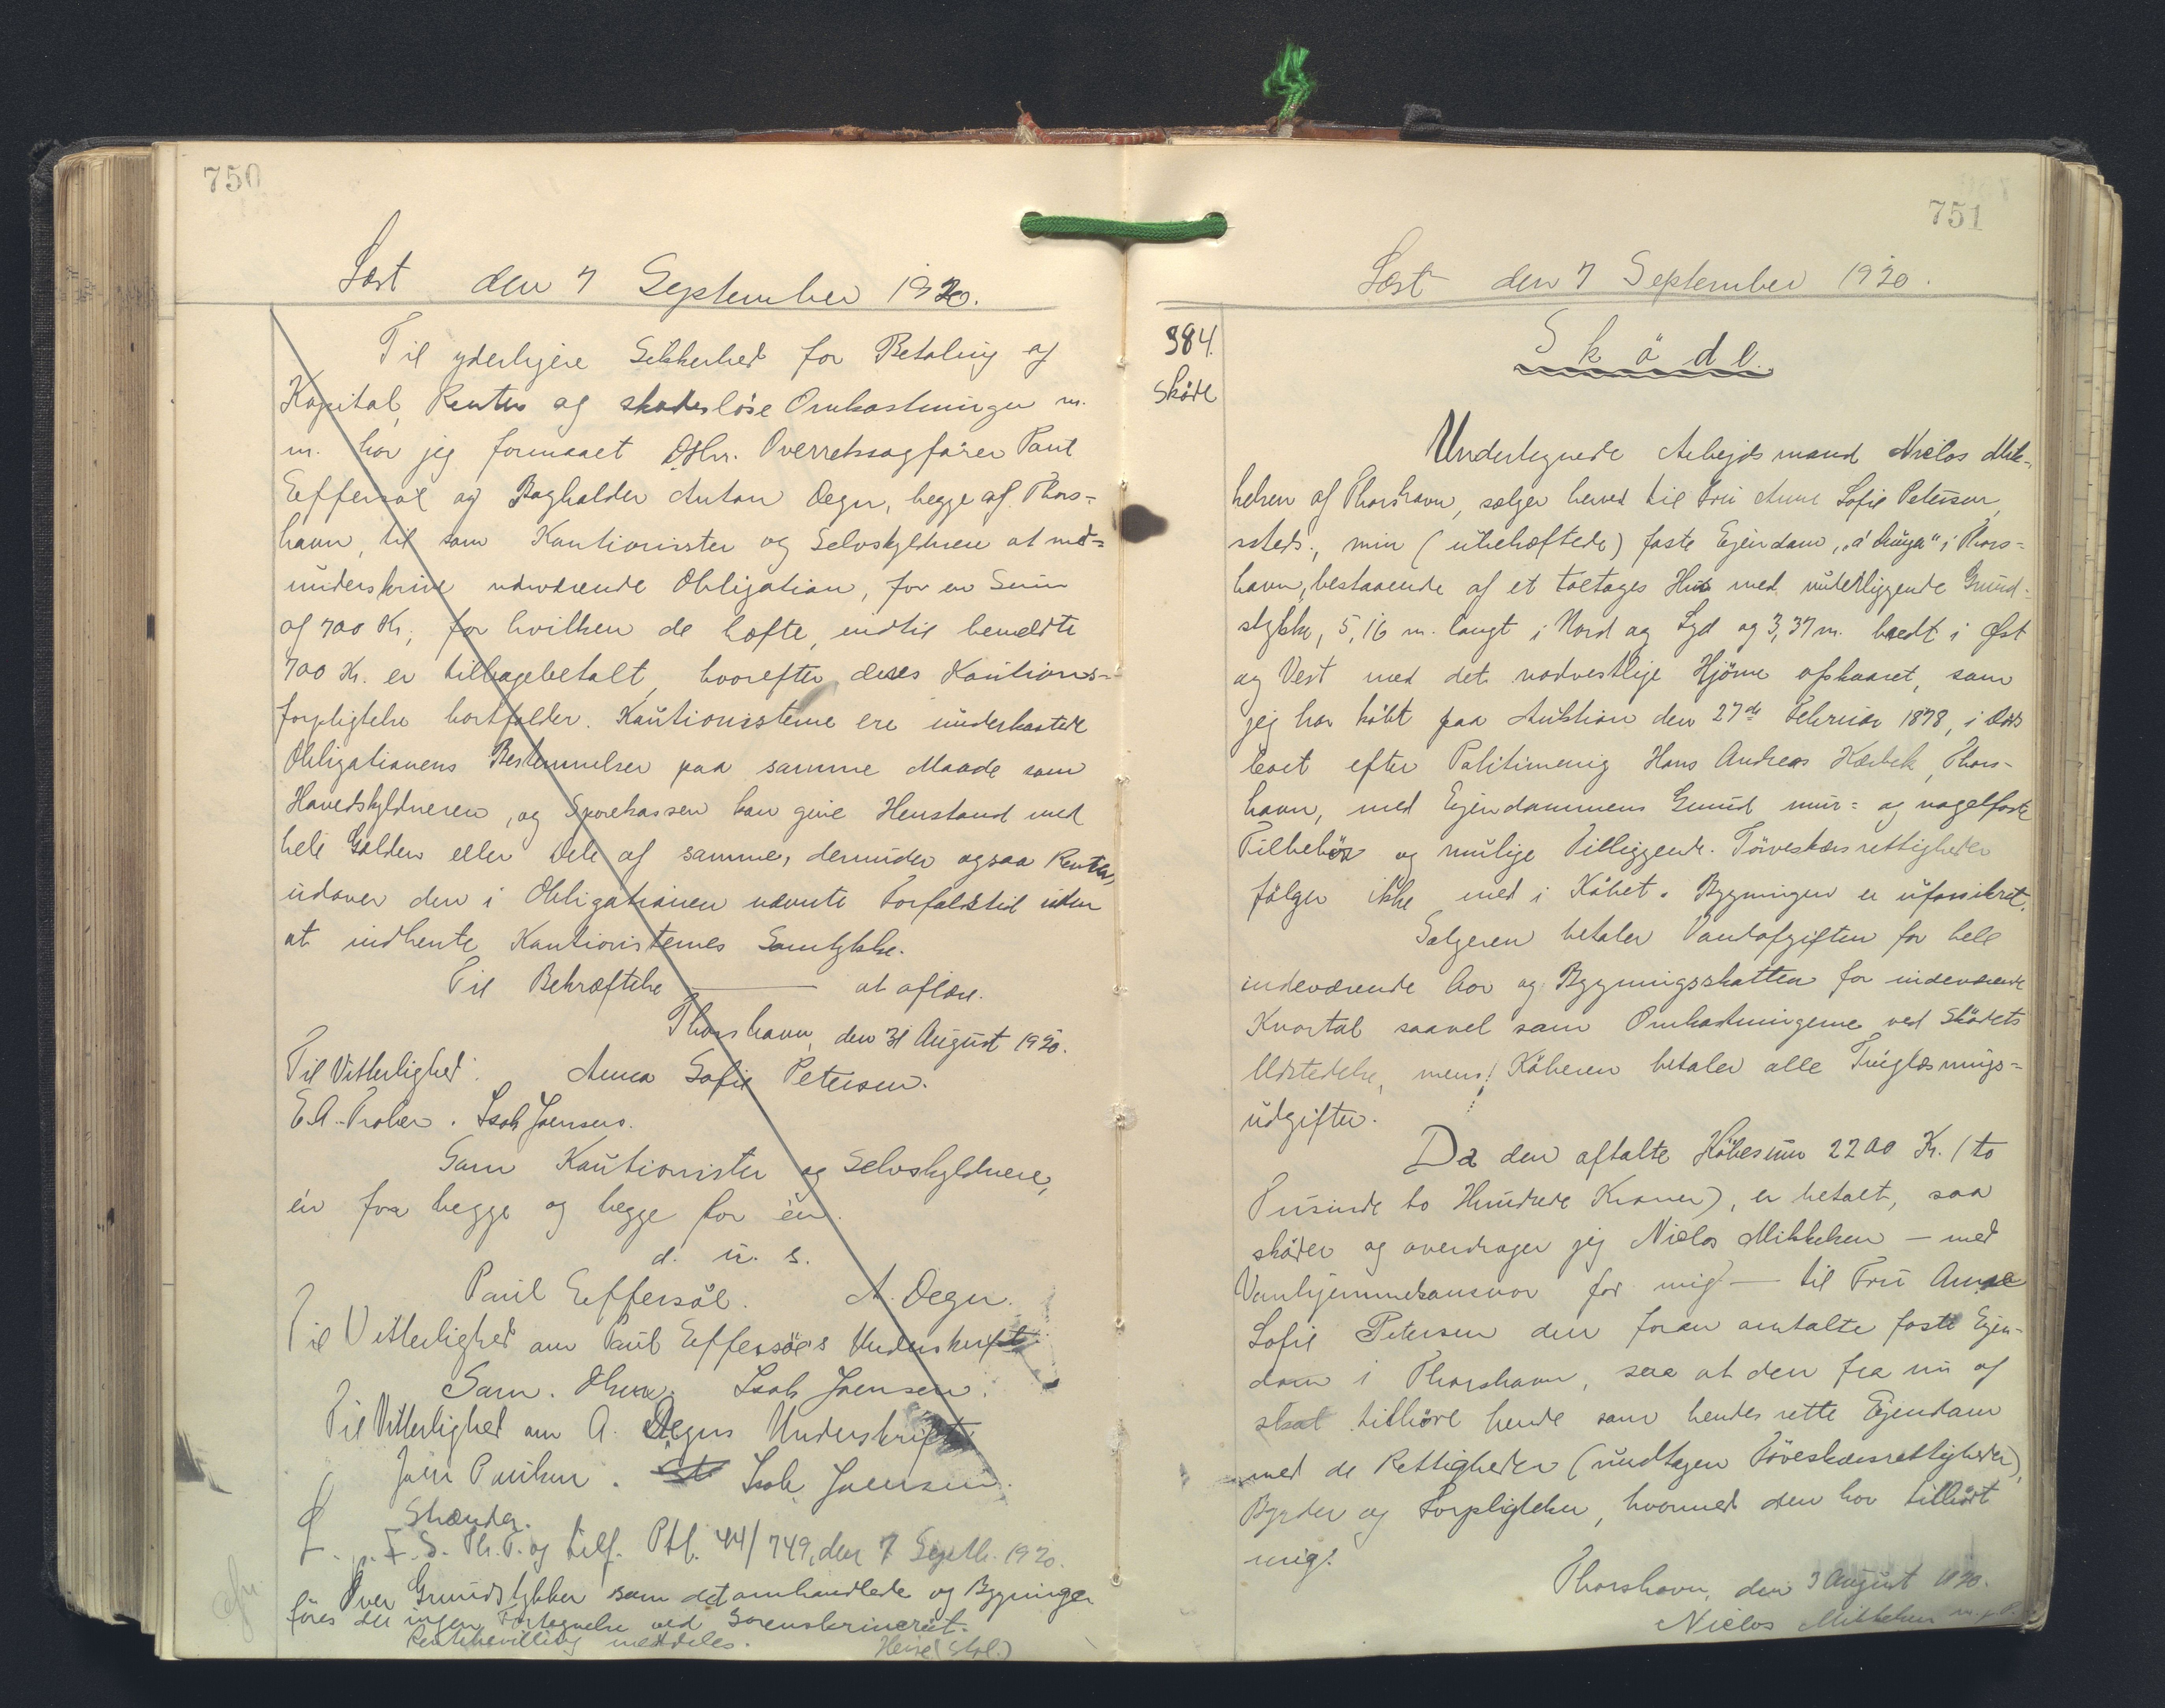 750
Læst den 7 September 1920.
Til yderligere Sikkerhed for Betaling af
Kapital, Renter og skadesløse Omkostninger m.
m. har jeg formaaet Hrr. Overretssagfører Paul
Effersøe og Bogholder Anton Degn, begge af Thors-
havn, til som Kautionister og Selvskyldnere at med-
underskrive nærværende Obligation, for en Sum
af 700 Kr., for hvilken de hæfte, indtil bemeldte
700 Kr. er tilbagebetalt, hvorefter deres Kautions-
forpligtelse bortfalder. Kautionisterne ere underkastede
Obligationens Bestemmelser paa samme Maade som
Hovedskyldneren, og Sparekassen kan give Henstand med
hele Gælden eller Dele af samme, derunder ogsaa Renter,
udover den i Obligationen nævnte Forfaldstid uden
at indhente Kautionisternes Samtykke.
Til Bekræftelse ——— at aflæse.
Thorshavn, den 31 August 1920.
Til Vitterlighed: Anna Sofie Petersen.
E.A. . Isak Joensen.
Som Kautionister og Selvskyldnere,
én for begge og begge for én.
d. u. s.
Paul Effersøe. A. Degn.
Til Vitterlighed om Paul Effersøe's Underskrift
Sam. Isak Joensen.
Til Vitterlighed om A. Degns Underskrift
Joen Poulsen. Isak Joensen.
Strandg.
F. S. Th. P. og tilf. Ptb. 44/749, den 7 Septb. 1920.
Over Grundstykker som det omhandlede og Bygninger
føres der ingen Fortegnelse ved Sorenskriveriet.
Rentebevilling meddeles. Heise (Sgl.)
751
Læst den 7 September 1920.
384.
Sköde
Sköde.
Undertegnede Arbejdsmand Niclas Mik-
kelsen af Thorshavn, sælger herved til Fru Anne Sofie Petersen,
ssteds., min (ubehæftede) faste Ejendom, „á " i Thors-
havn, bestaaende af et toetages Hus med underliggende Grund-
stykke, 5,16 m. langt i Nord og Syd og 3,37 m. bredt i Øst
og Vest med det nordvestlige Hjörne afskaaret, som
jeg har köbt paa Auktion den 27de Februar 1898, i Döds
boet efter Politimenig Hans Andreas Kærbek, Thors-
havn, med Ejendommens Grund mur- og nagelfaste
Tilbehör og mulige Tilliggende. Törveskærsrettigheder
fölger ikke med i Köbet. Bygningen er uforsikret.
Sælgeren betaler Vandafgiften for hele
indeværende Aar og Bygningsskatten for indeværende
Kvartal saavel som Omkostningerne ved Sködets
Udstedelse, mens Köberen betaler alle Tinglæsnings-
udgifter.
Da den aftalte Köbesum 2200 Kr. (to
Tusinde to Hundrede Kroner), er betalt, saa
sköder og overdrager jeg Niclas Mikkelsen – med
Vanhjemmelsansvar for mig – til Fru Anne
Sofie Petersen den foran omtalte faste Ejen-
dom i Thorshavn, saa at den fra nu af
skal tilhöre hende som hendes rette Ejendom
med de Rettigheder (undtagen Töveskærsrettigheder),
Byrder og Forpligtelser, hvormed den har tilhört
mig.
Thorshavn, den 3 August 1920.
Niclas Mikkelsen m. p. P.